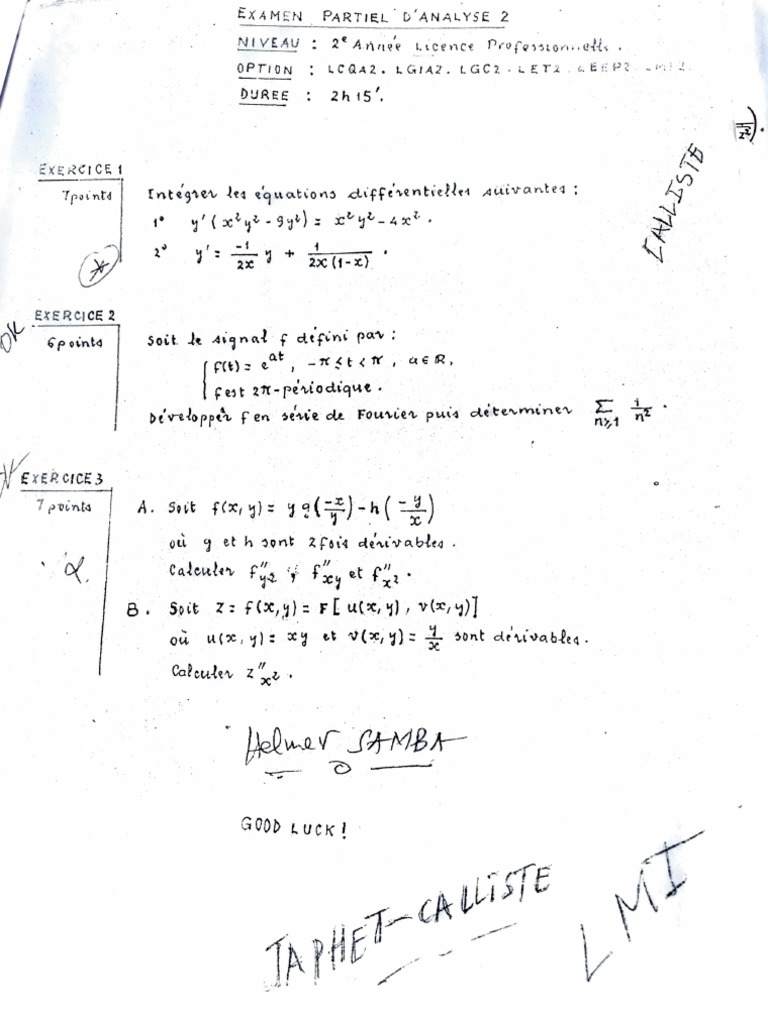 EXAMEN PARTIEL D'ANALYSE 2
NIVEAU : 2e Année Licence Professionnelle.
OPTION : LCQA2. LGIA2. LGC2. LET2. LEEP2. LMI2.
DUREE : 2h15'.
CALLISTE
EXERCICE 1
7points
Intégrer les équations différentielles suivantes :
1° y'(x²y² - 9y²) = x²y² - 4x² .
2° y' = -1/2x y + 1/2x(1-x) .
EXERCICE 2
OK
6points
Soit le signal f défini par :
f(t) = e^at, -π ≤ t < π, a ∈ ℝ,
f est 2π-périodique.
Développer f en série de Fourier puis déterminer Σ n≥1 1/n² .
EXERCICE 3
7 points
A. Soit f(x,y) = y g(-x/y) - h(-y/x)
où g et h sont 2 fois dérivables.
Calculer f''y2 , f''xy et f''x2 .
B. Soit z = f(x,y) = F[u(x,y), v(x,y)]
où u(x,y) = xy et v(x,y) = y/x sont dérivables.
Calculer z''x2 .
Helmer SAMBA
GOOD LUCK!
JAPHET-CALLISTE
LMI